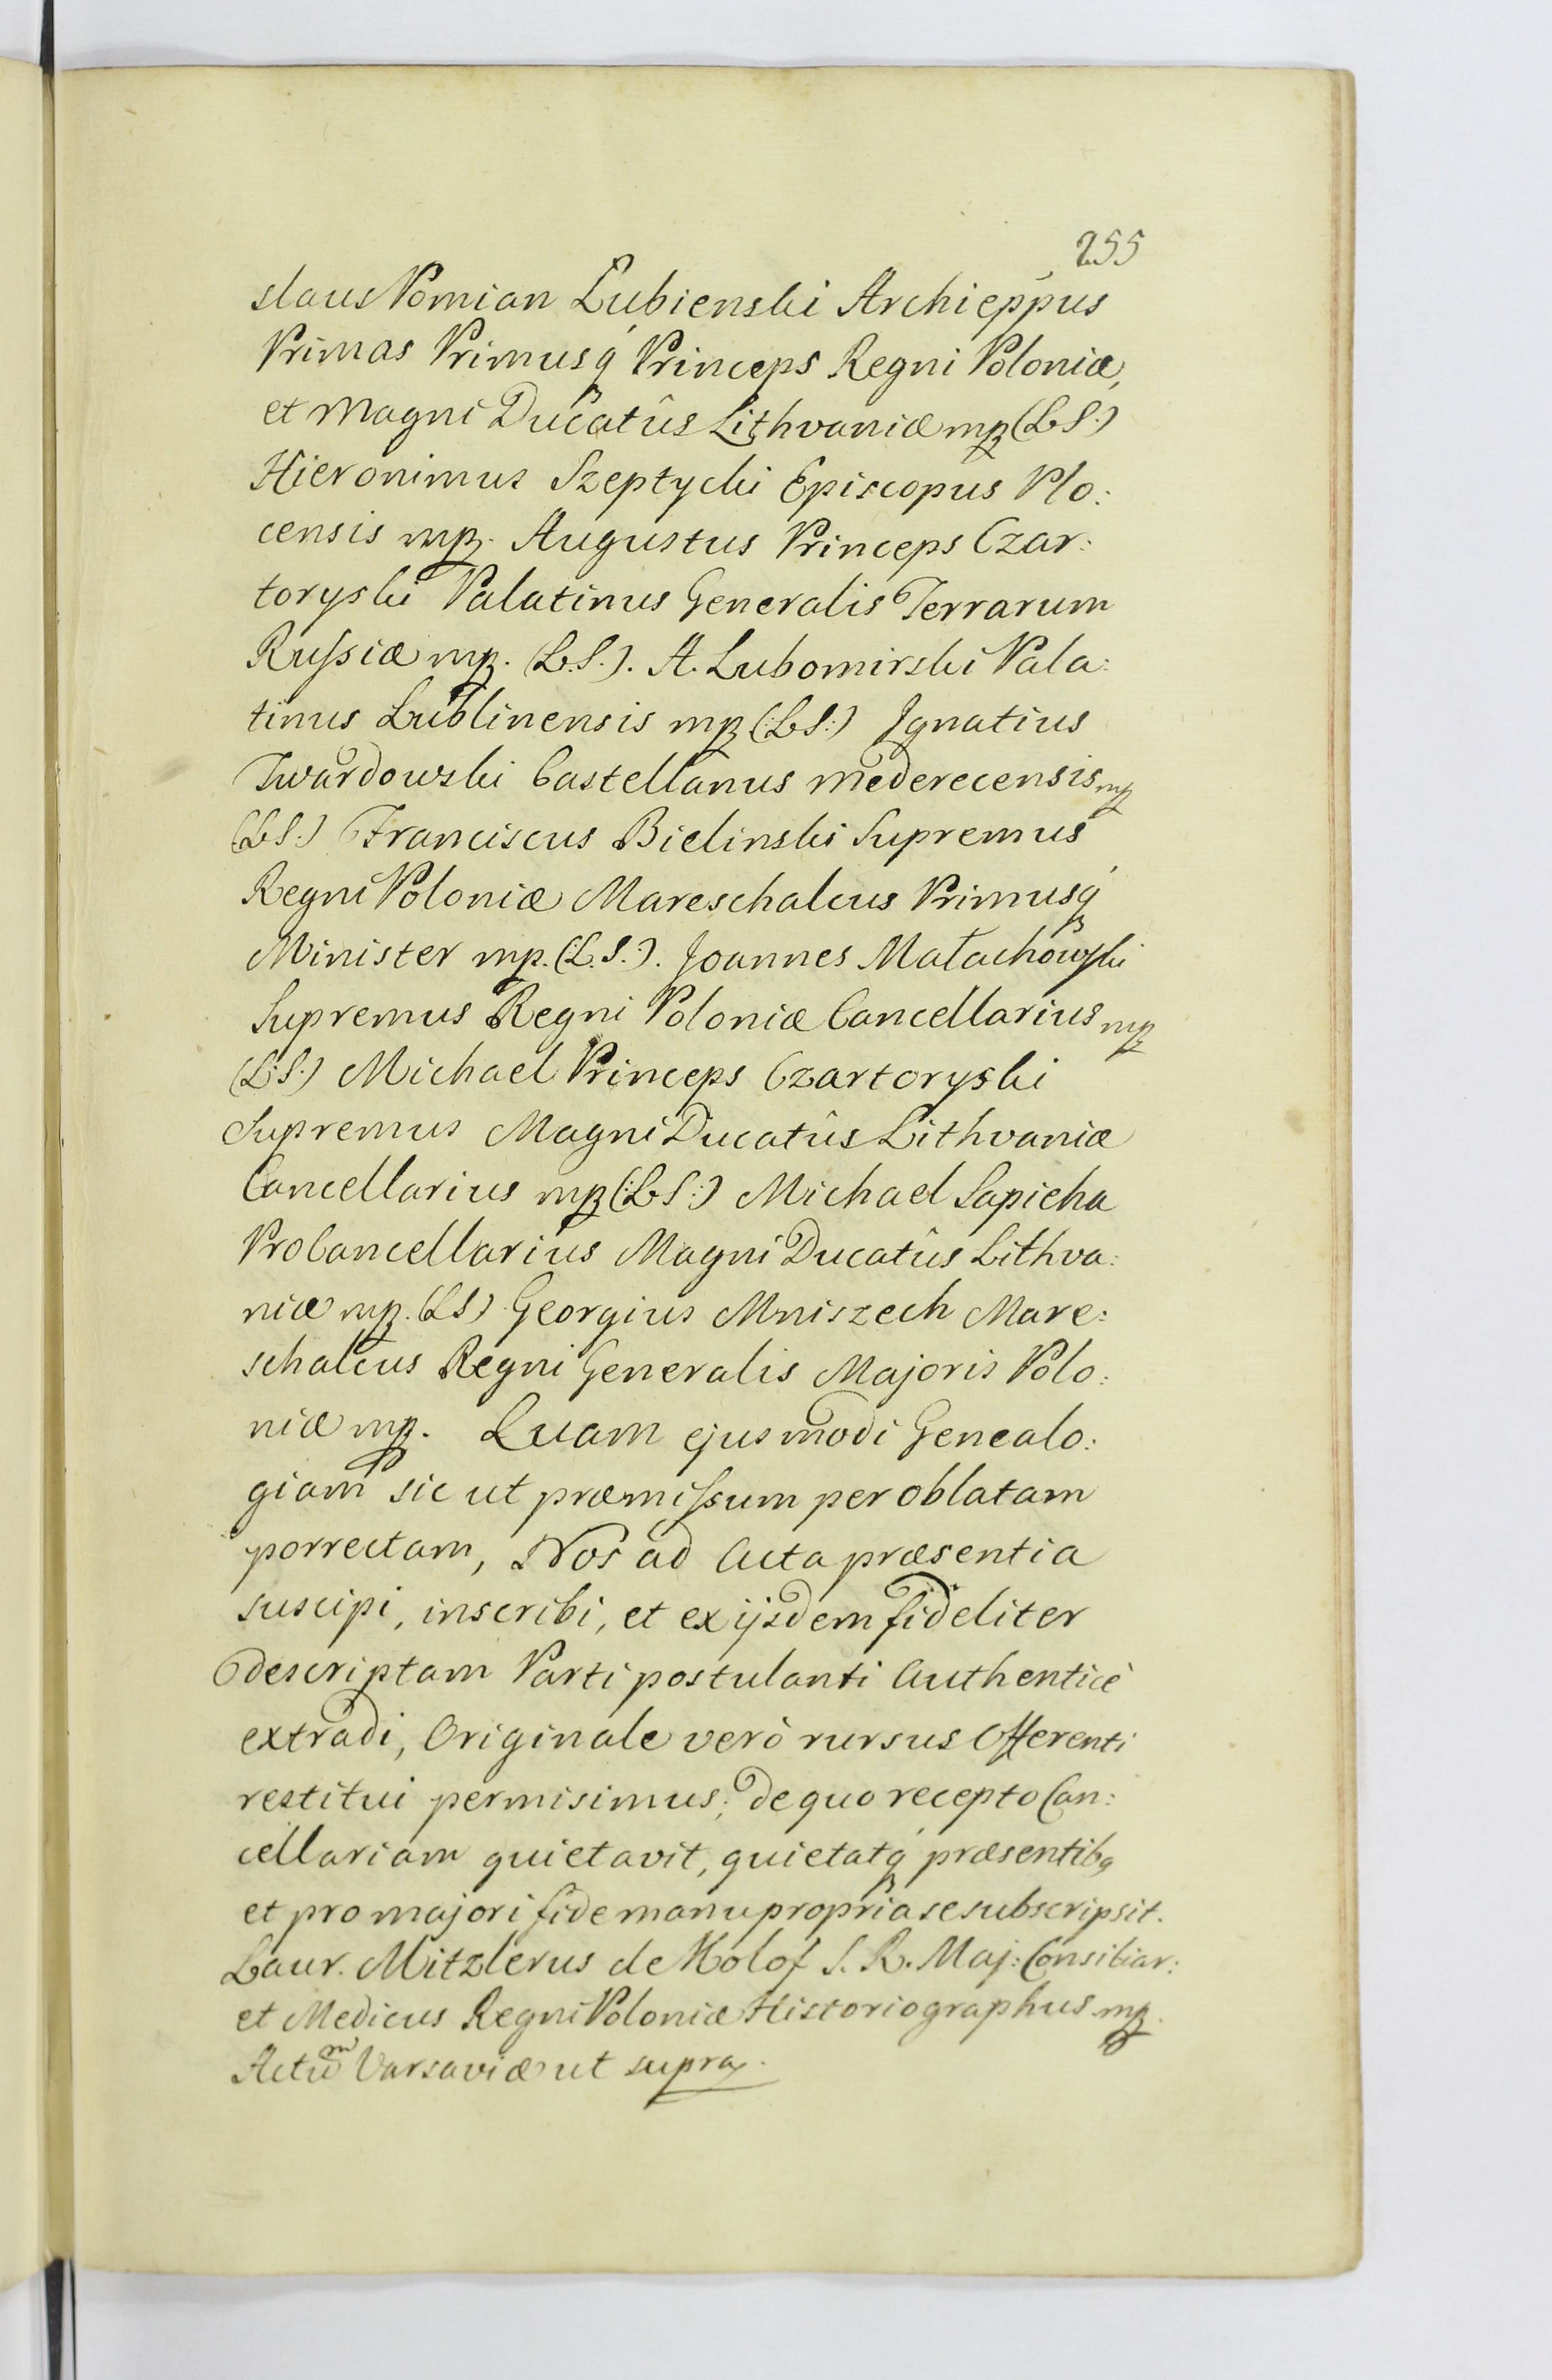 255
slaus Pomian Łubienski Archieppus
Primas Primusq́ Princeps Regni Poloniæ,
et Magni Ducatûs Lithvaniæ mp (L.S.)
Hieronimus Szeptycki Episcopus Plo:
censis mp. Augustus Princeps Czar:
toryski Palatinus Generalis Terrarum
Russiæ mp. (L.S.). A. Lubomirski Pala:
tinus Lublinensis mp (:L.S:) Ignatius
Twardowski Castellanus Mederecensis mp
(L.S.) Franciscus Bielinski Supremus
Regni Poloniæ Mareschalcus Primusq́
Minister mp. (:L.S.:). Joannes Małachowski
Supremus Regni Poloniæ Cancellarius mp
(L.S.) Michael Princeps Czartoryski
Supremus Magni Ducatûs Lithvaniæ
Cancellarius mp (:L.S:) Michael Sapieha
ProCancellarius Magni Ducatûs Lithva:
niæ mp. (L.S) Georgius Mniszech Mare:
schalcus Regni Generalis Majoris Polo:
niæ mp. Quam ejusmodi Genealo:
giam sic ut præmissum per oblatam
porrectam, Nos ad Acta præsentia
suscipi, inscribi, et ex ijsdem fideliter
descriptam Parti postulanti Authenticè
extradi, Originale verò rursus Offerenti
restitui permisimus; de quo recepto Can:
cellariam quietavit, quietatq́ præsentibq
et pro majori fide manu propria se subscripsit.
Laur. Mitzlerus de Kolof S. R. Maj: Consiliar:
et Medicus Regni Poloniæ Historiographus mp.
Actum Varsaviæ ut supra.